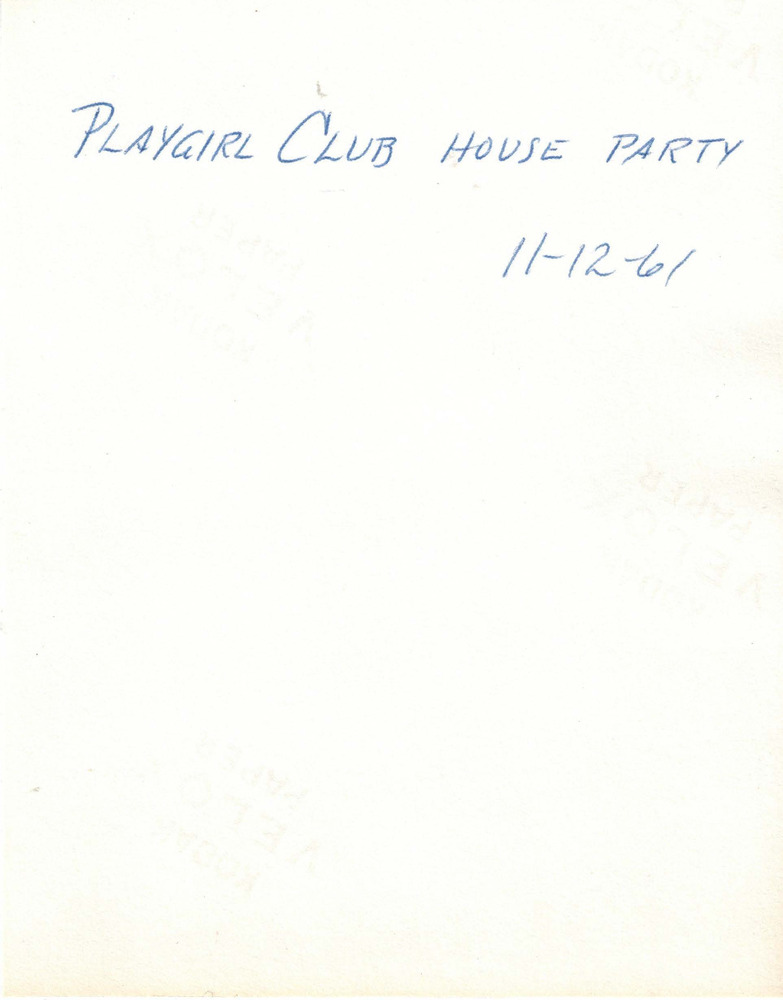 PLAYGIRL CLUB HOUSE PARTY
11-12-61
KODAK
VELOX
PAPER
VELOX
KODAK
PAPER
VELOX
KODAK
PAPER
VELOX
KODAK